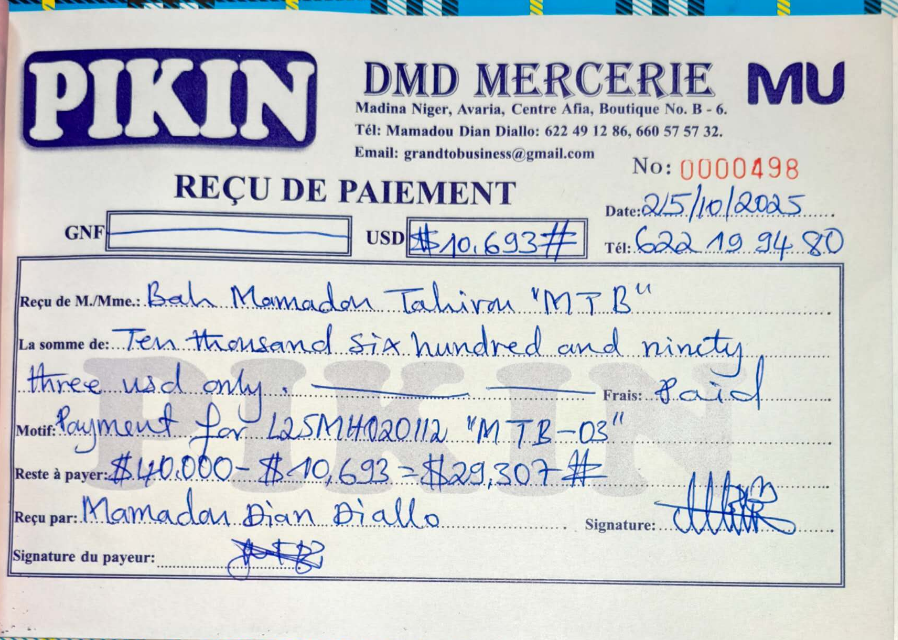 PIKIN
DMD MERCERIE
MU
Madina Niger, Avaria, Centre Afia, Boutique No. B - 6.
Tél: Mamadou Dian Diallo: 622 49 12 86, 660 57 57 32.
Email: grandtobusiness@gmail.com
No: 0000498
REÇU DE PAIEMENT
Date: 25/10/2025
GNF
USD $10.693#
Tél: 622 19 94 80
Reçu de M./Mme.: Bah Mamadou Tahirou "MTB"
La somme de: Ten thousand six hundred and ninety
three usd only. Frais: Paid
Motif: Payment for L25MH020112 "MTB-03"
Reste à payer: $40.000 - $10,693 = $29,307#
Reçu par: Mamadou Dian Diallo Signature:
Signature du payeur:
PIKIN